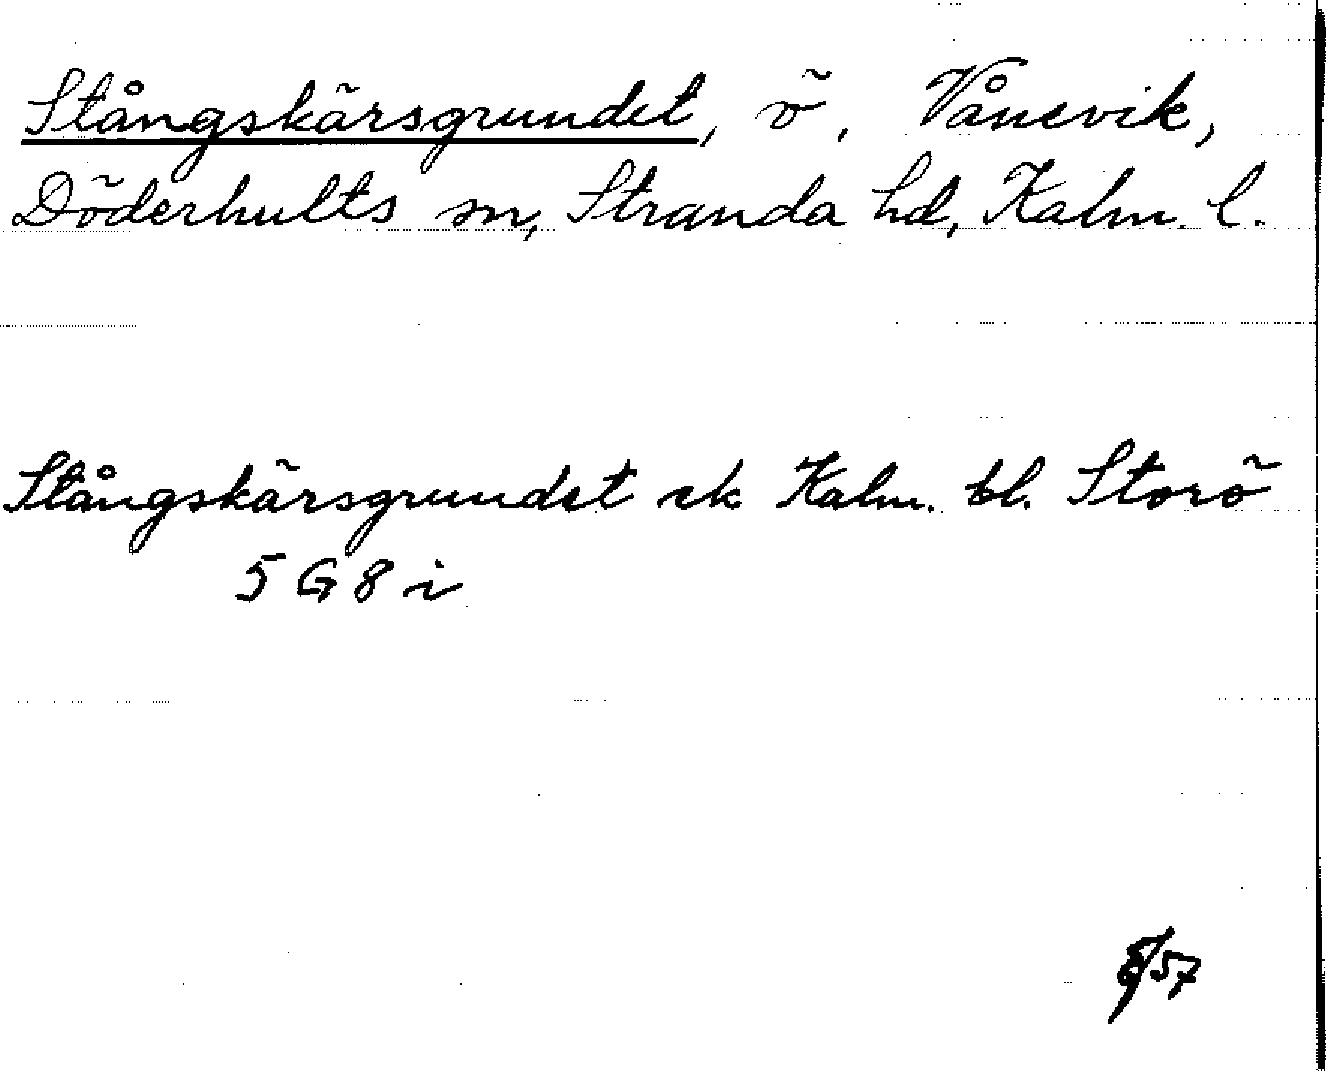 Stångskärsgrundet, ö, Vånevik,
Döderhults sn, Stranda hd, Kalm. l.
Stångskärsgrundet ek Kalm. bl. Storö
5 G 8 i